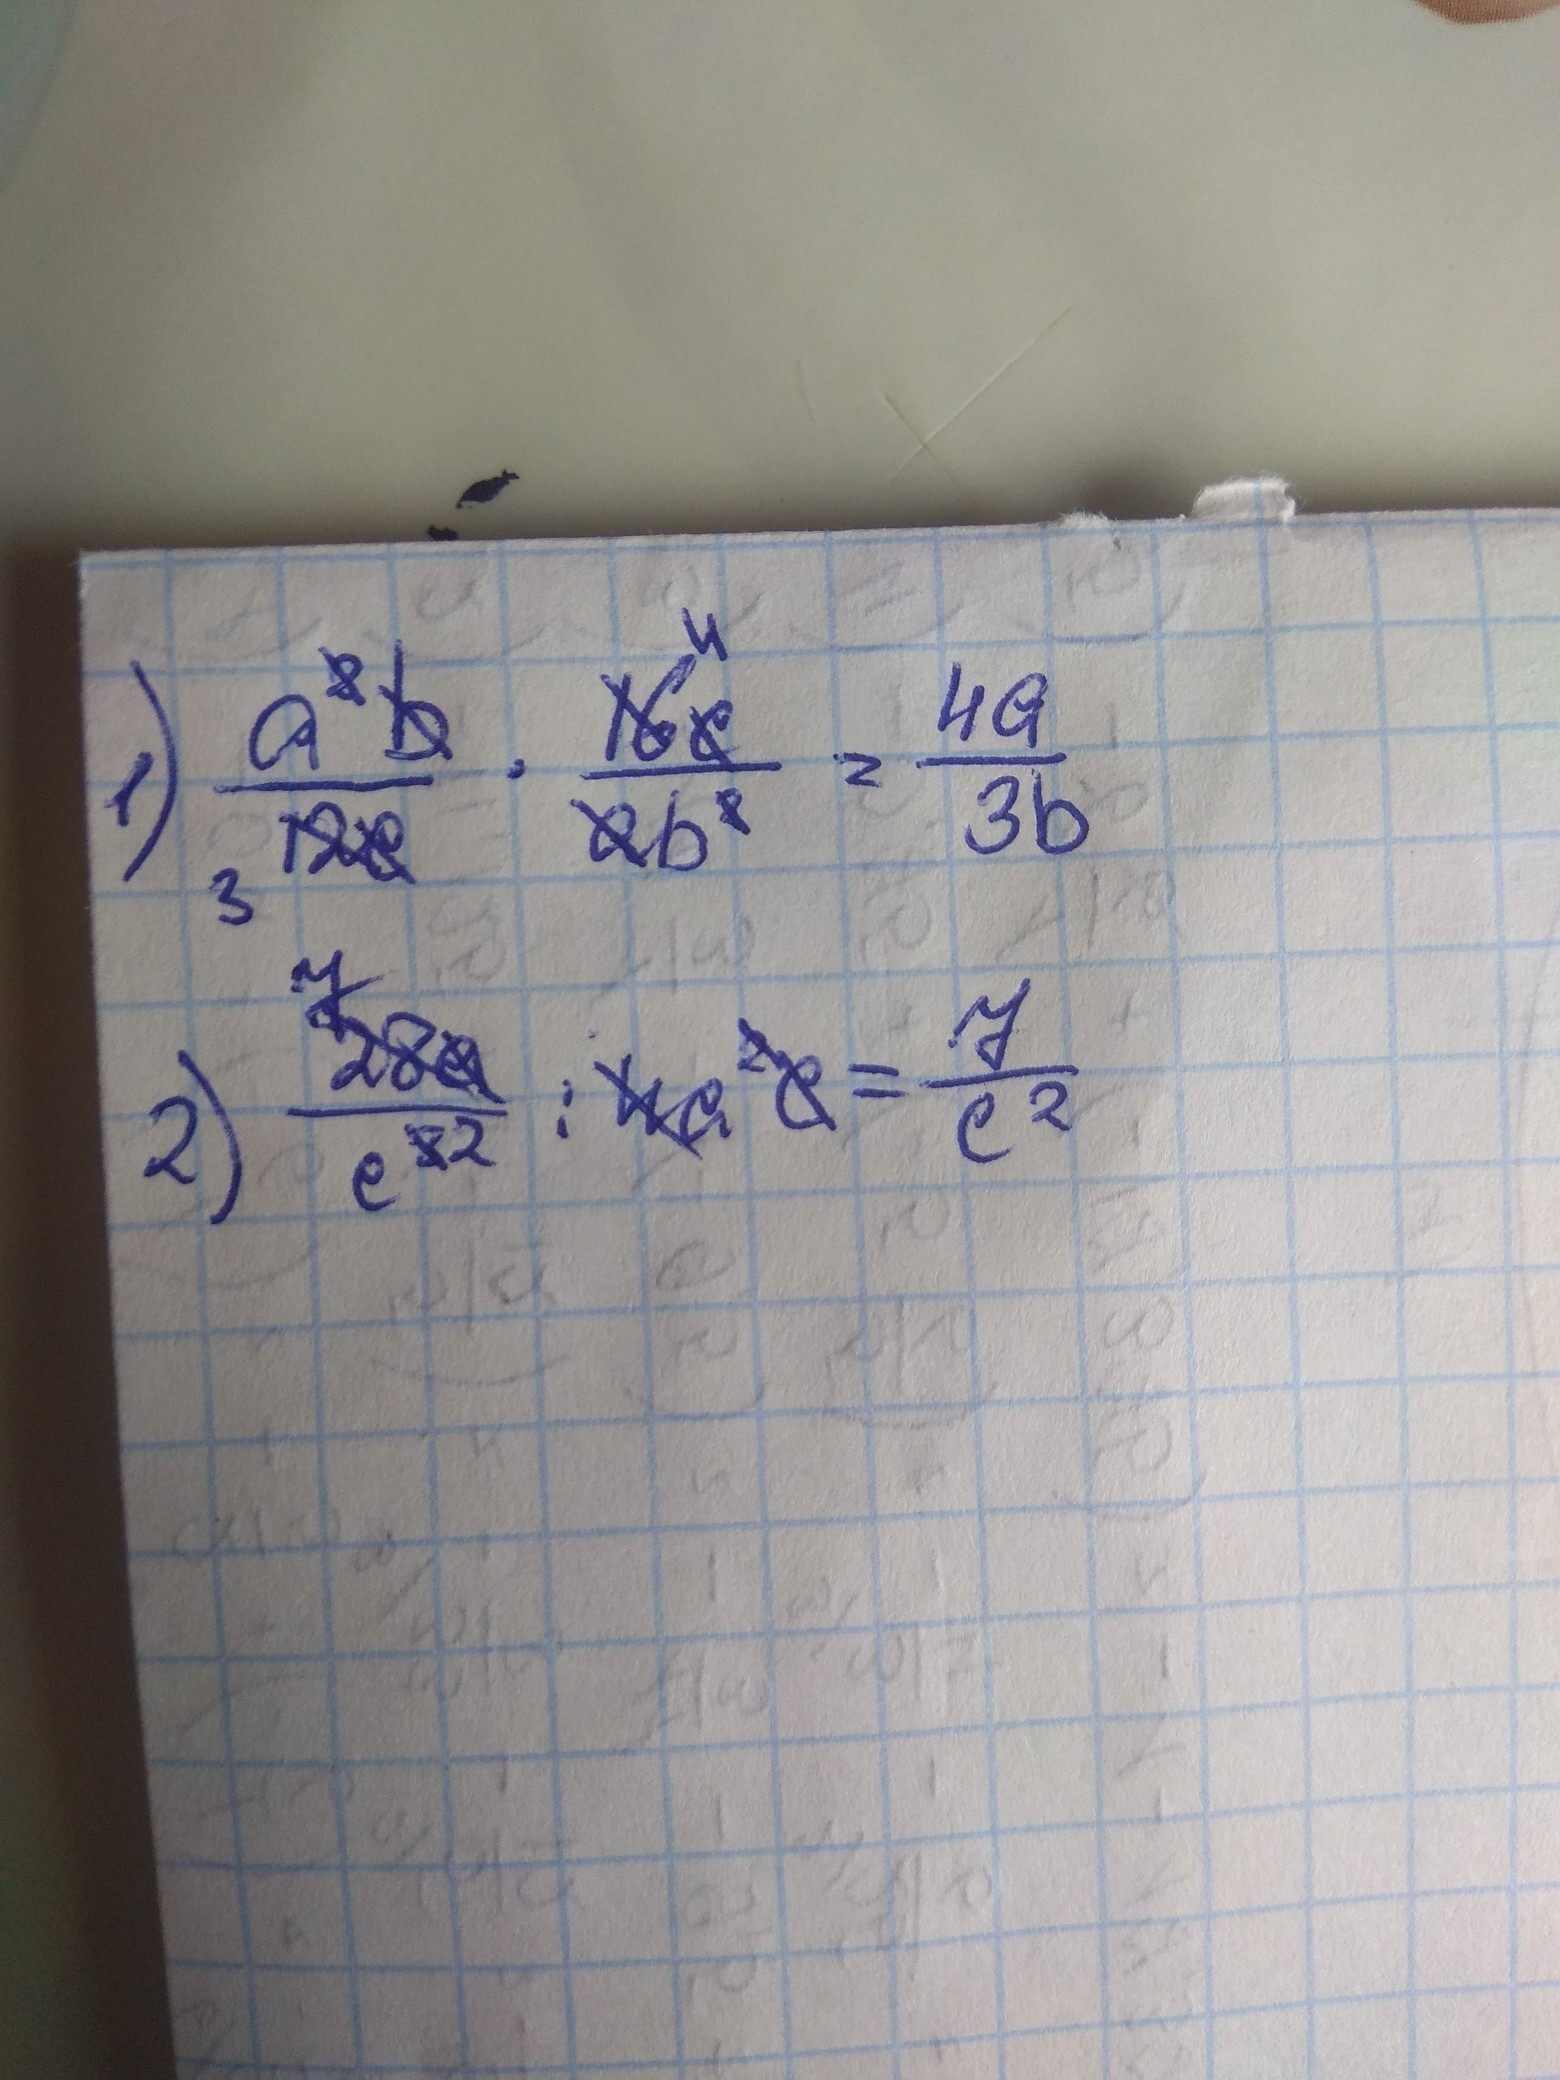 1) a²b/12c · 16c⁴/ab² = 4a/3b
3
7
2) 28a/c³² : 4a²c = 7/c²